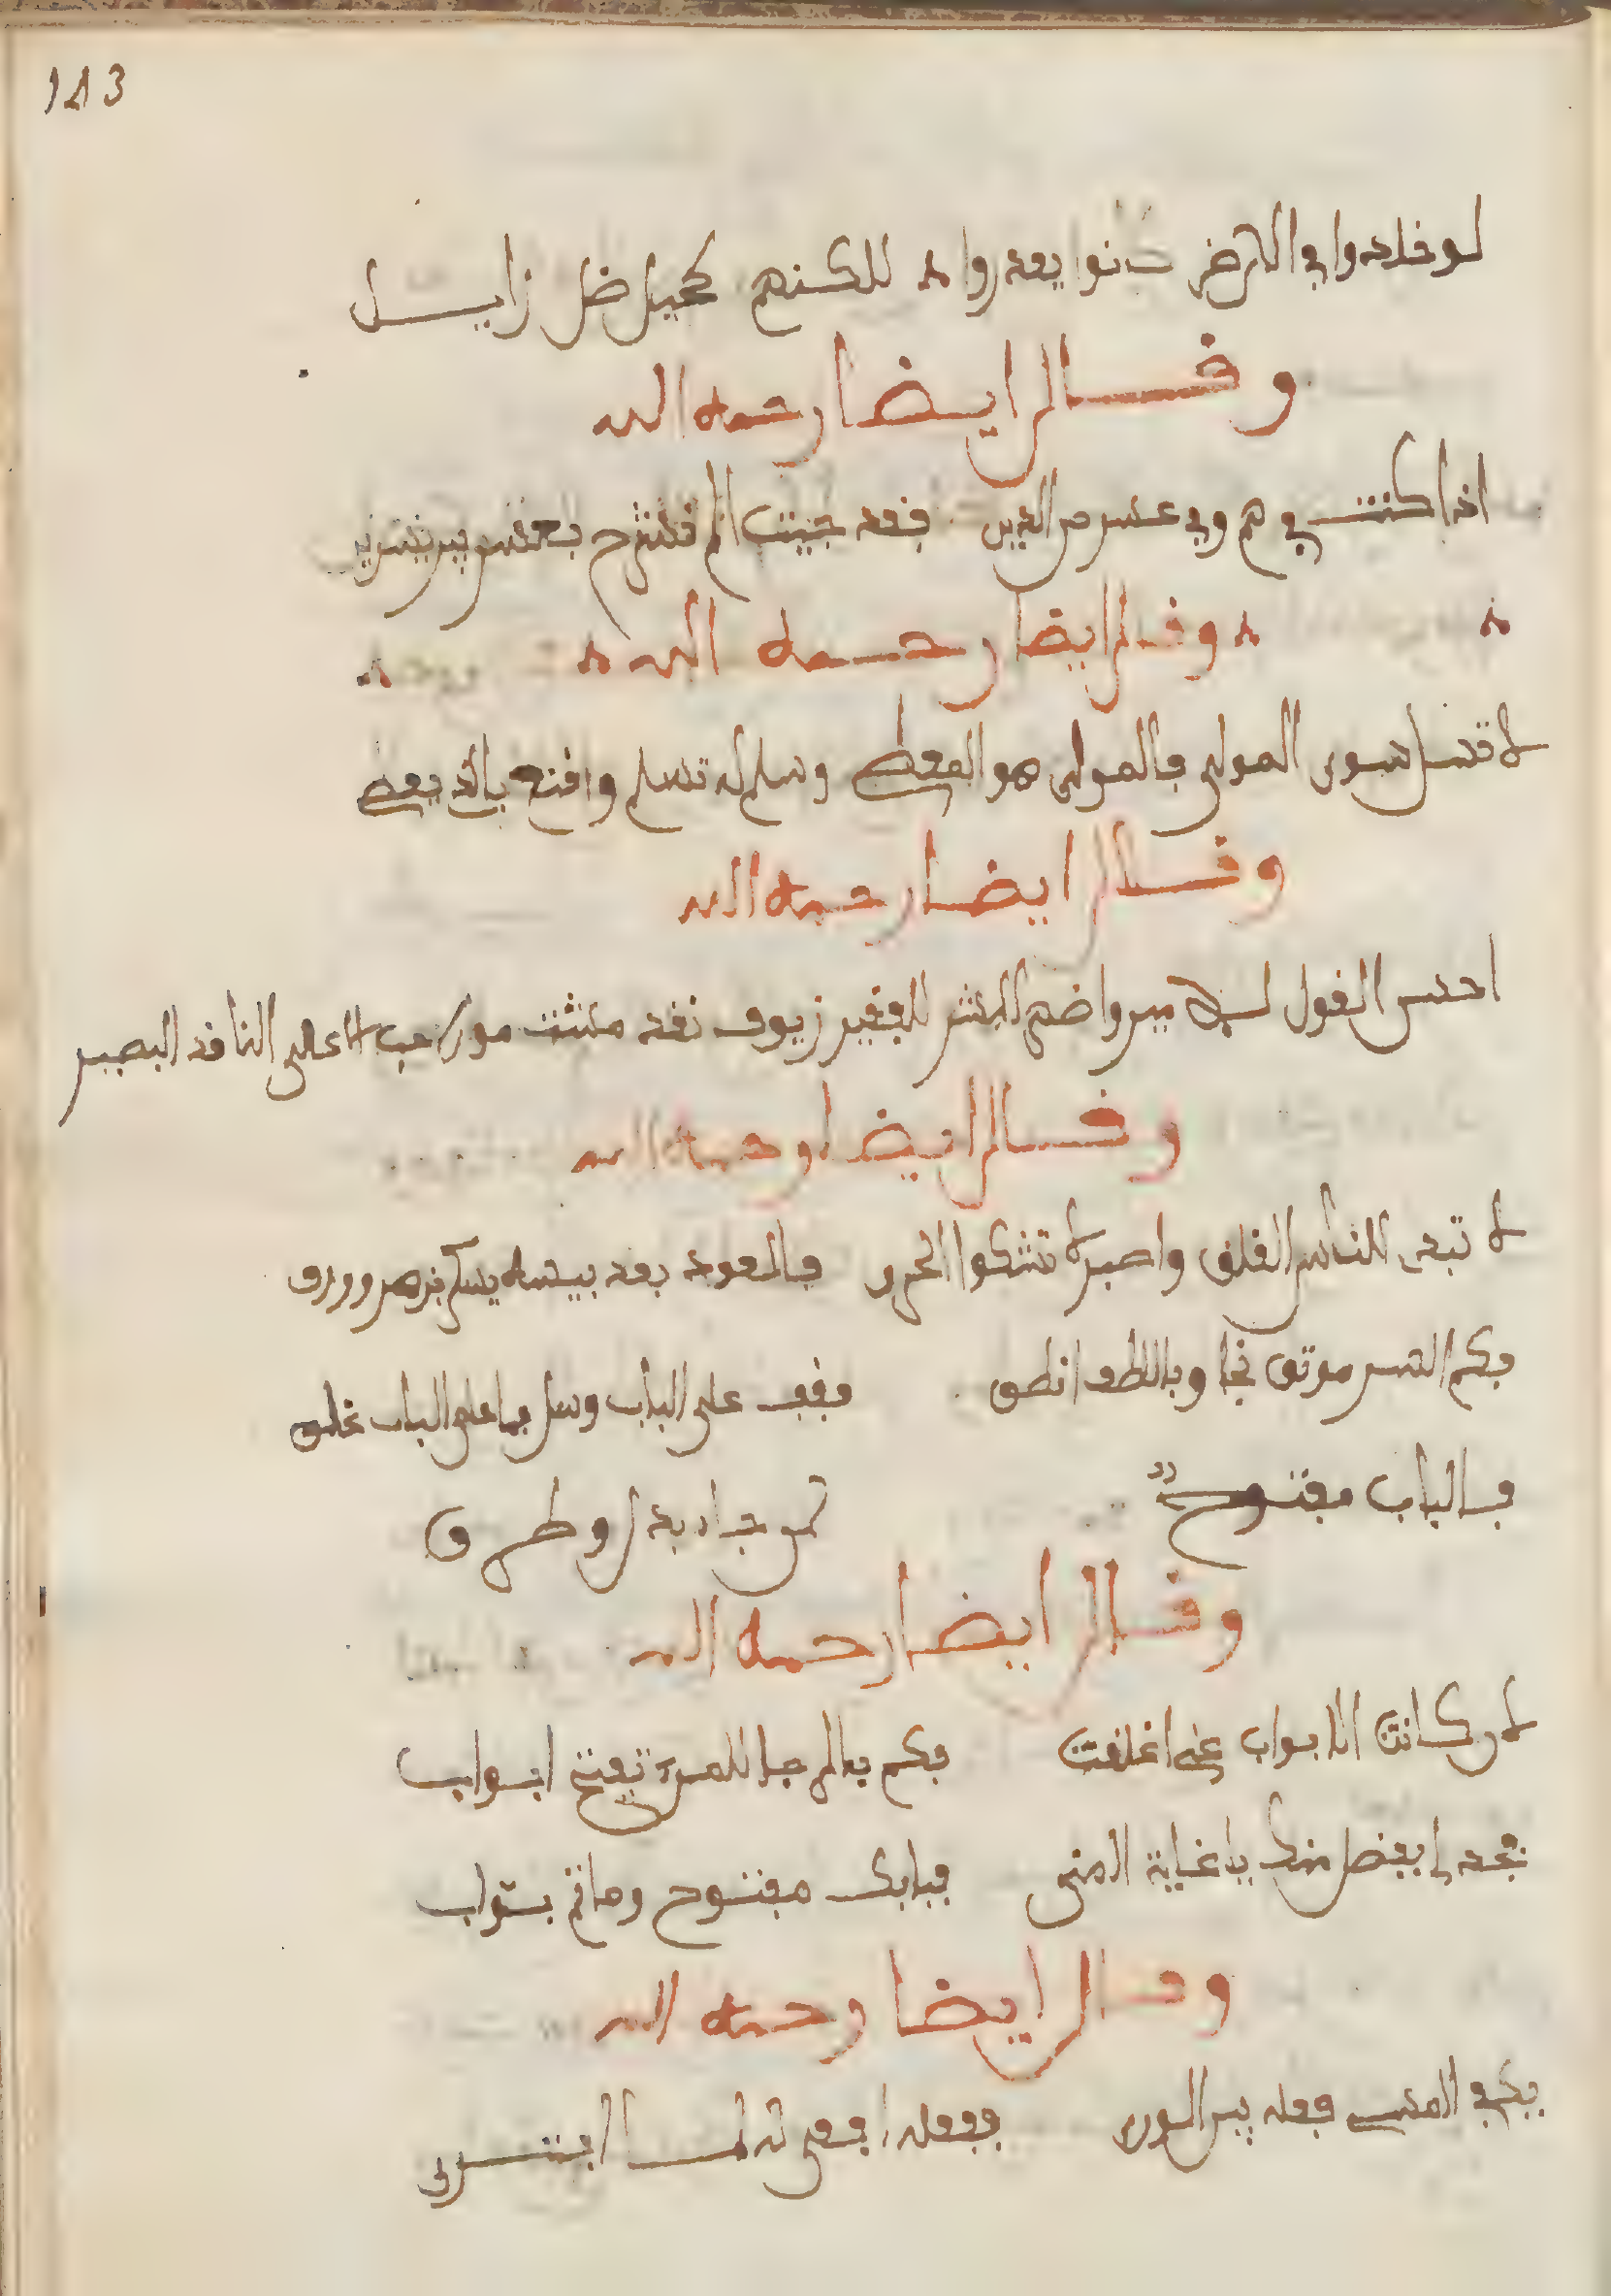 183
لو خلدوا في الارض كانوا يعدروا لاكنهم كخيل ضل زايل
وقال ايضا رحمه الله
اذا كنت في هم وفي عسر من الدين فعد جيت الم نشرح بعسر بين يسرين
وقال ايضا رحمه الله
لا تسل سوى المولى فالمولى هو المعطي وسلم له تسلم واقنع بالذ يعطي
وقال ايضا رحمه الله
احسن القول لسلا مير واضح البشر للفقير زيوف نقد مشت مور على الناقد البصير
وقال ايضا رحمه الله
لا تبدى للناس القلق واصبر لا تشكوا الحرق فالعود بعد يبسه يسكى بزهر وورق
فكم اسر موثق نجا وباللطف انطق فقف على الباب وسل ما على الباب غلق
فالباب مفتوح لمن جا بذل وطرق
وقال ايضا رحمه الله
لان كانت الابواب عني اغلقت فكم بالرجا للمرء تفتح ابواب
فجد لى بفضل منك يا غاية المنى فبابك مفتوح وما ثم بواب
وقال ايضا رحمه الله
يكفي المسي فعله بين الورى ففعله افعى له لما افترى